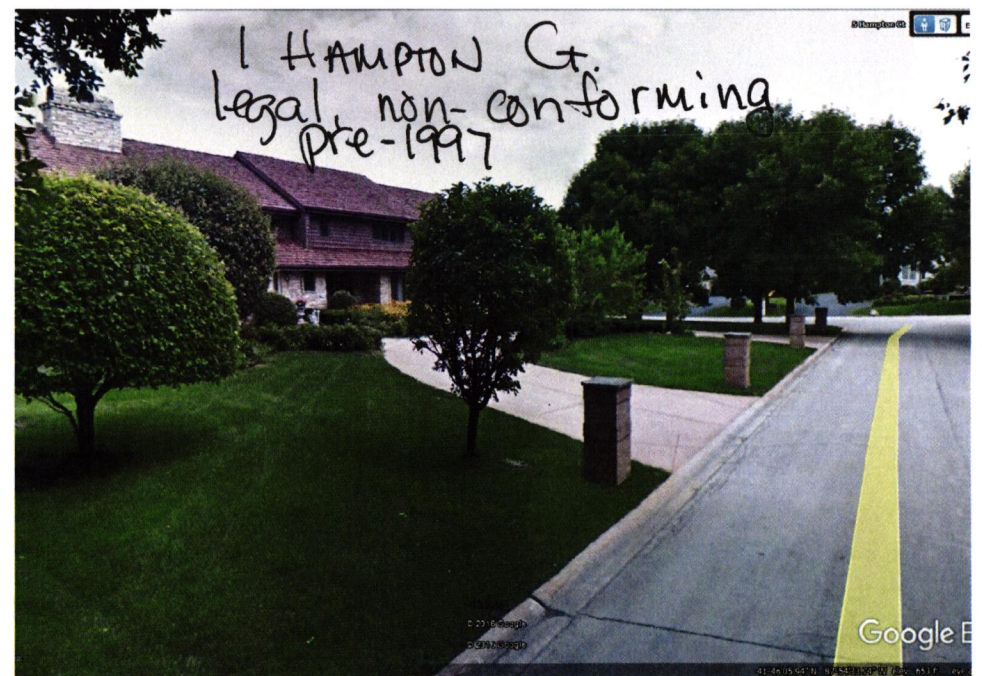 S Hampton Ct
1 HAMPTON Ct.
legal, non-conforming
pre-1997
© 2016 Google
© 2016 Google
Google E